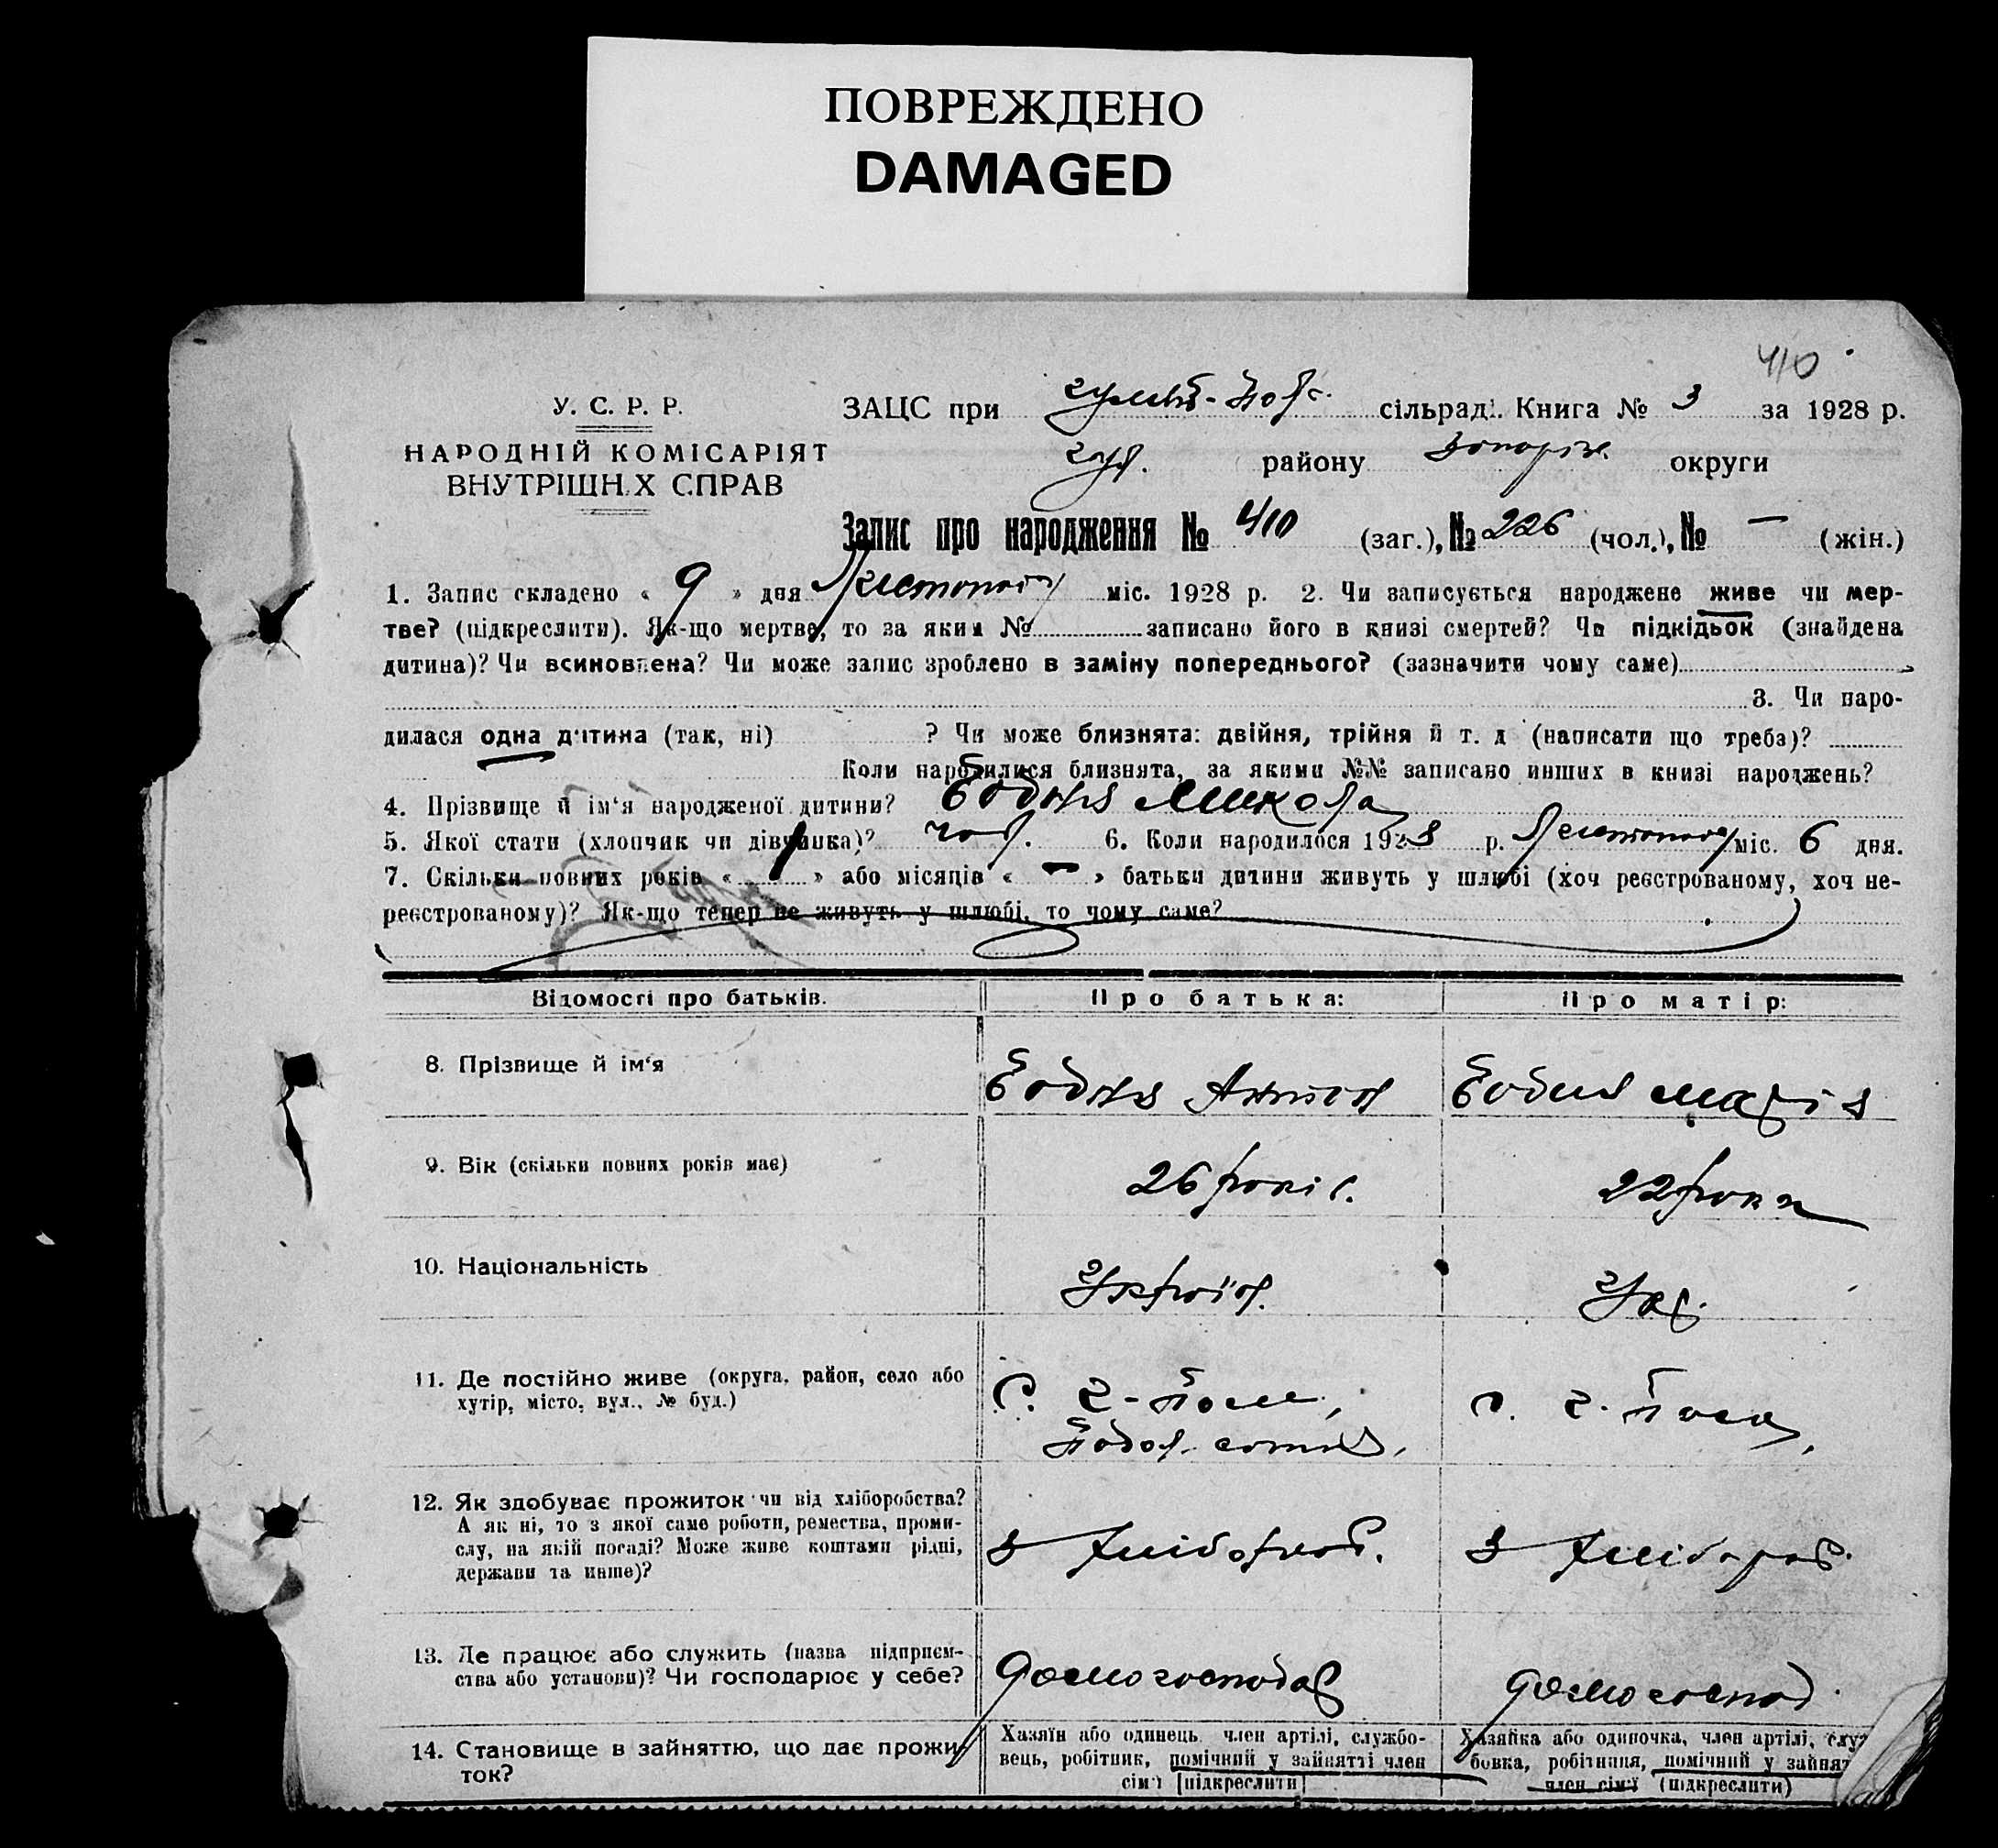 ПОВРЕЖДЕНО
DAMAGED
410
У. С. Р. Р.
НАРОДНІЙ КОМІСАРІЯТ
ВНУТРІШНІХ СПРАВ
ЗАЦС при гуляй-пол. сільраді. Книга № 3 за 1928 р.
гул. району Запоріж. округи
Запис про народження № 410 (заг.), № 226 (чол.), № — (жін.)
1. Запис складено « 9 » дня Листопаду міс. 1928 р. 2. Чи записується народжене живе чи мер-
тве? (підкреслити). Як-що мертве, то за яким № записано його в книзі смертей? Чи підкідьок (знайдена
дитина)? Чи всиновлена? Чи може запис зроблено в заміну попереднього? (зазначити чому саме)
3. Чи наро-
дилася одна дитина (так, ні) ? Чи може близнята: двійня, трійня й т. д (написати що треба)?
Коли народилися близнята, за якими №№ записано инших в книзі народжень?
4. Прізвище й ім'я народженої дитини? Микола
5. Якої стати (хлопчик чи дівчинка)? чол. 6. Коли народилося 1928 р. Листопаду міс. 6 дня.
7. Скільки повних років « 1 » або місяців « — » батьки дитини живуть у шлюбі (хоч реєстрованому, хоч не-
реєстрованому)? Як-що тепер не живуть у шлюбі, то чому саме?
Відомості про батьків. Про батька: Про матір:
8. Прізвище й ім'я Марія
9. Вік (скільки повних років має) 26 років. 22 роки
10. Національність Україн. Укр.
11. Де постійно живе (округа, район, село або
хутір, місто, вул., № буд.) с. Г-Поле, с. Г-Поле,
12. Як здобуває прожиток чи від хліборобства?
А як ні, то з якої саме роботи, ремества, проми-
слу, на якій посаді? Може живе коштами рідні,
держави та инше)? З хлібороб. З хлібороб.
13. Де працює або служить (назва підприєм-
ства або установи)? Чи господарює у себе? домогосподар домогоспод.
14. Становище в зайняттю, що дає прожи-
ток?
Хазяїн або одинець, член артілі, службо-
вець, робітник, помічний у зайнятті член
сім'ї [підкреслити]
Хазяйка або одиночка, член артілі, служ
бовка, робітниця, помічний у зайнят
член сім'ї (підкреслити)